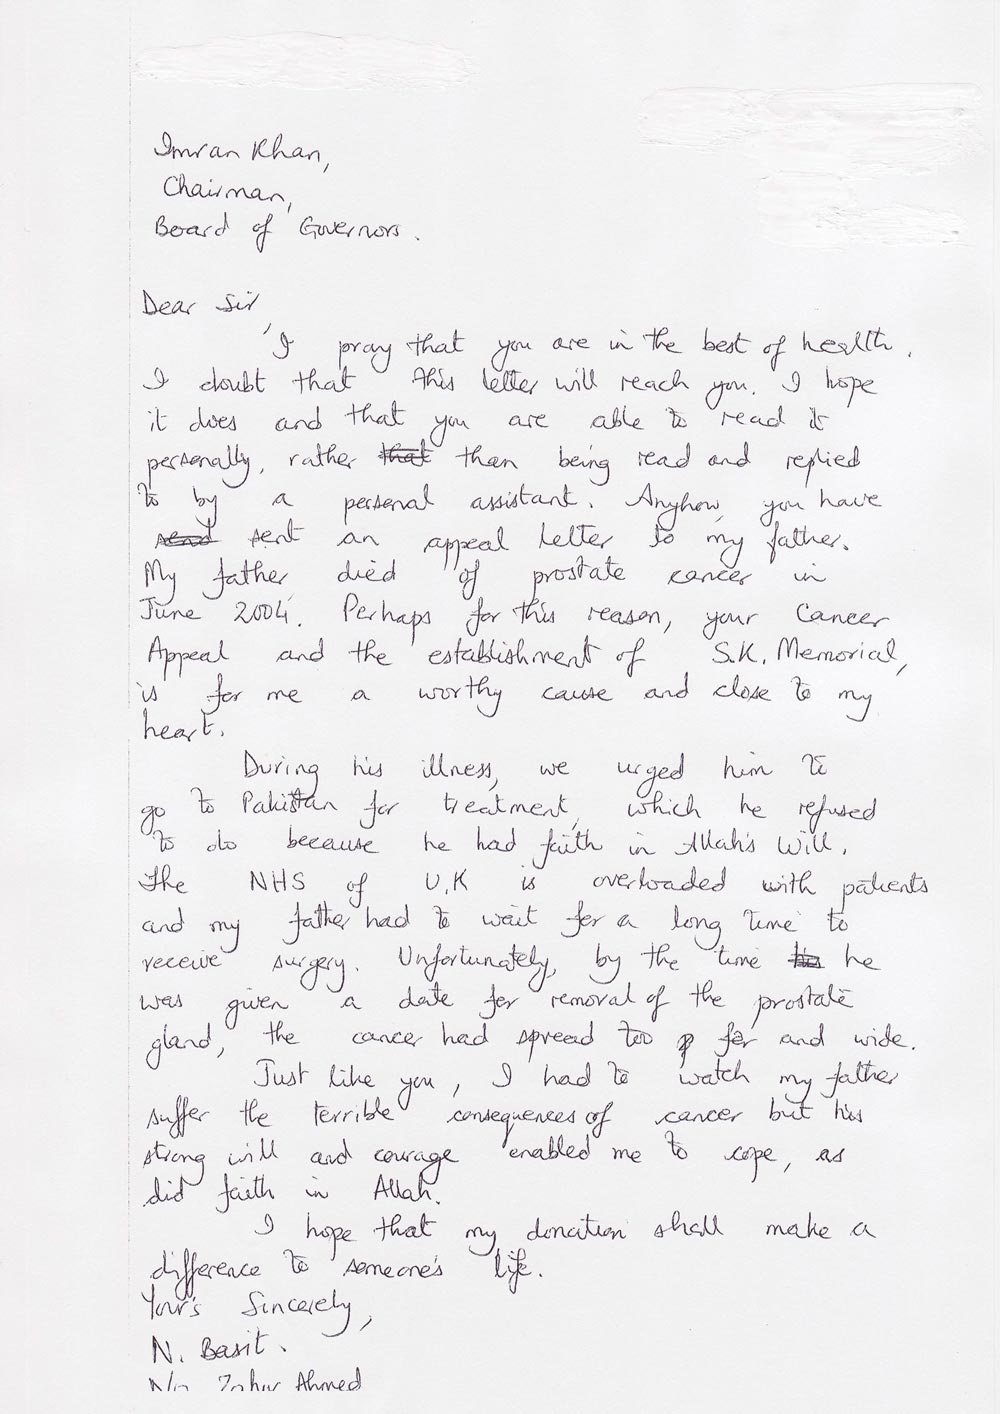 Imran Khan,
Chairman,
Board of Governors.
Dear Sir,
I pray that you are in the best of health.
I doubt that this letter will reach you. I hope
it does and that you are able to read it
personally, rather that than being read and replied
to by a personal assistant. Anyhow, you have
send sent an appeal letter to my father.
My father died of prostate cancer in
June 2004. Perhaps for this reason, your Cancer
Appeal and the establishment of S.K. Memorial,
is for me a worthy cause and close to my
heart.
During his illness, we urged him to
go to Pakistan for treatment, which he refused
to do because he had faith in Allah's Will.
The NHS of U.K is overloaded with patients
and my father had to wait for a long time to
receive surgery. Unfortunately, by the time his he
was given a date for removal of the prostate
gland, the cancer had spread too far and wide.
Just like you, I had to watch my father
suffer the terrible consequences of cancer but his
strong will and courage enabled me to cope, as
did faith in Allah.
I hope that my donation shall make a
difference to someone's life.
Your's Sincerely,
N. Basit.
Ahmed